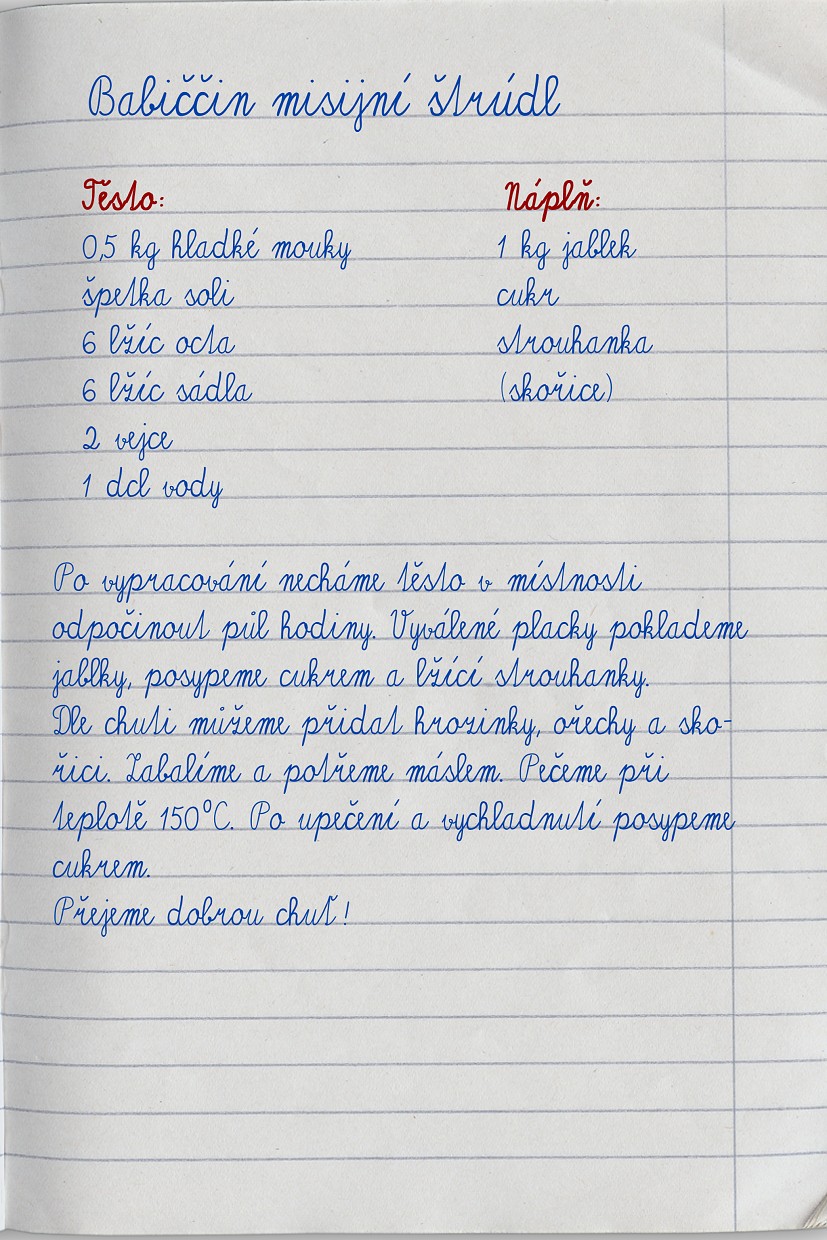 Babiččin misijní štrúdl
Těsto:
0,5 kg hladké mouky
špetka soli
6 lžíc octa
6 lžíc sádla
2 vejce
1 dcl vody
Náplň:
1 kg jablek
cukr
strouhanka
(skořice)
Po vypracování necháme těsto v místnosti
odpočinout půl hodiny. Vyválené placky poklademe
jablky, posypeme cukrem a lžící strouhanky.
Dle chuti můžeme přidat hrozinky, ořechy a sko-
řici. Zabalíme a potřeme máslem. Pečeme při
teplotě 150°C. Po upečení a vychladnutí posypeme
cukrem.
Přejeme dobrou chuť!